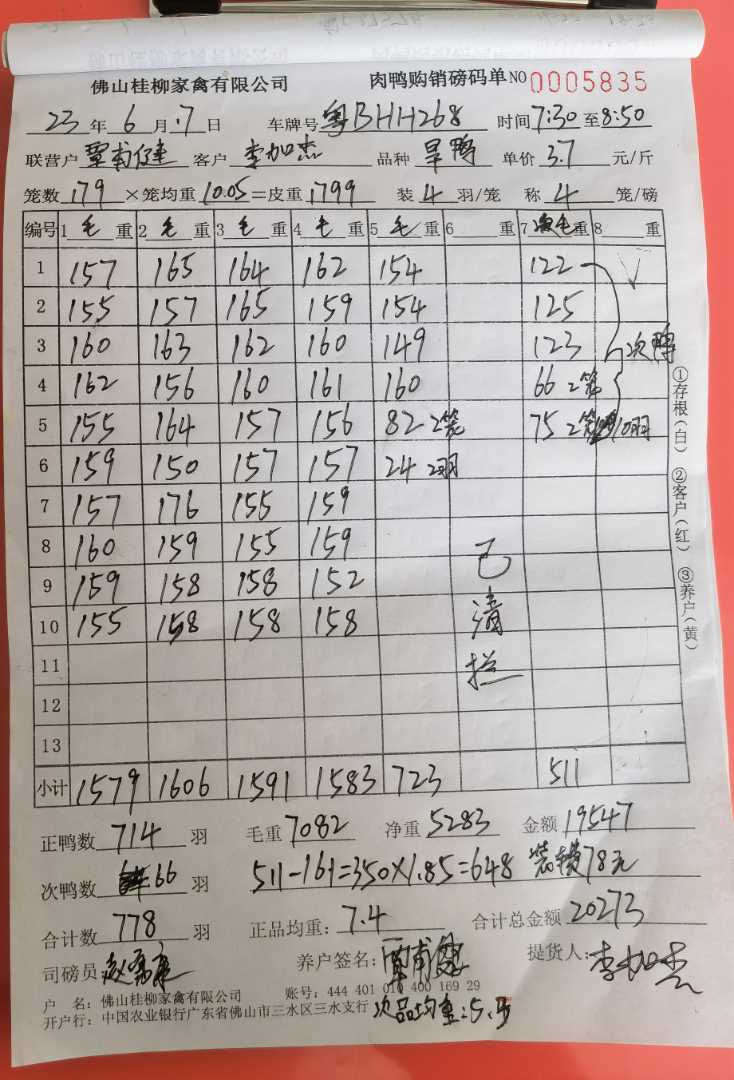 佛山桂柳家禽有限公司 肉鸭购销磅码单 NO 0005835
23 年 6 月 7 日 车牌号 粤BHH268 时间 7:30 至 8:50
联营户 覃甫健 客户 李加杰 品种 旱鸭 单价 3.7 元/斤
笼数 179 ×笼均重 10.05 =皮重 1799 装 4 羽/笼 称 4 笼/磅
编号 1 毛 重 2 毛 重 3 毛 重 4 毛 重 5 毛 重 6 重 7 次毛重 8 重
1 157 165 164 162 154 122
2 155 157 165 159 154 125
3 160 163 162 160 149 123 次鸭
4 162 156 160 161 160 66 2笼
5 155 164 157 156 82 2笼 75 2笼 10羽
6 159 150 157 157 24 2羽
7 157 176 155 159
8 160 159 155 159
9 159 158 158 152
10 155 158 158 158
11
12
13
已清拦
小计 1579 1606 1591 1583 723 511
①存根(白) ②客户(红) ③养户(黄)
正鸭数 714 羽 毛重 7082 净重 5283 金额 19547
次鸭数 66 羽 511-161=350×1.85=648 装 78元
合计数 778 羽 正品均重: 7.4 合计总金额 20273
司磅员 养户签名: 覃甫健 提货人: 李加杰
户 名: 佛山桂柳家禽有限公司 账号: 444 401 010 400 169 29
开户行: 中国农业银行广东省佛山市三水区三水支行 次品均重:5.3